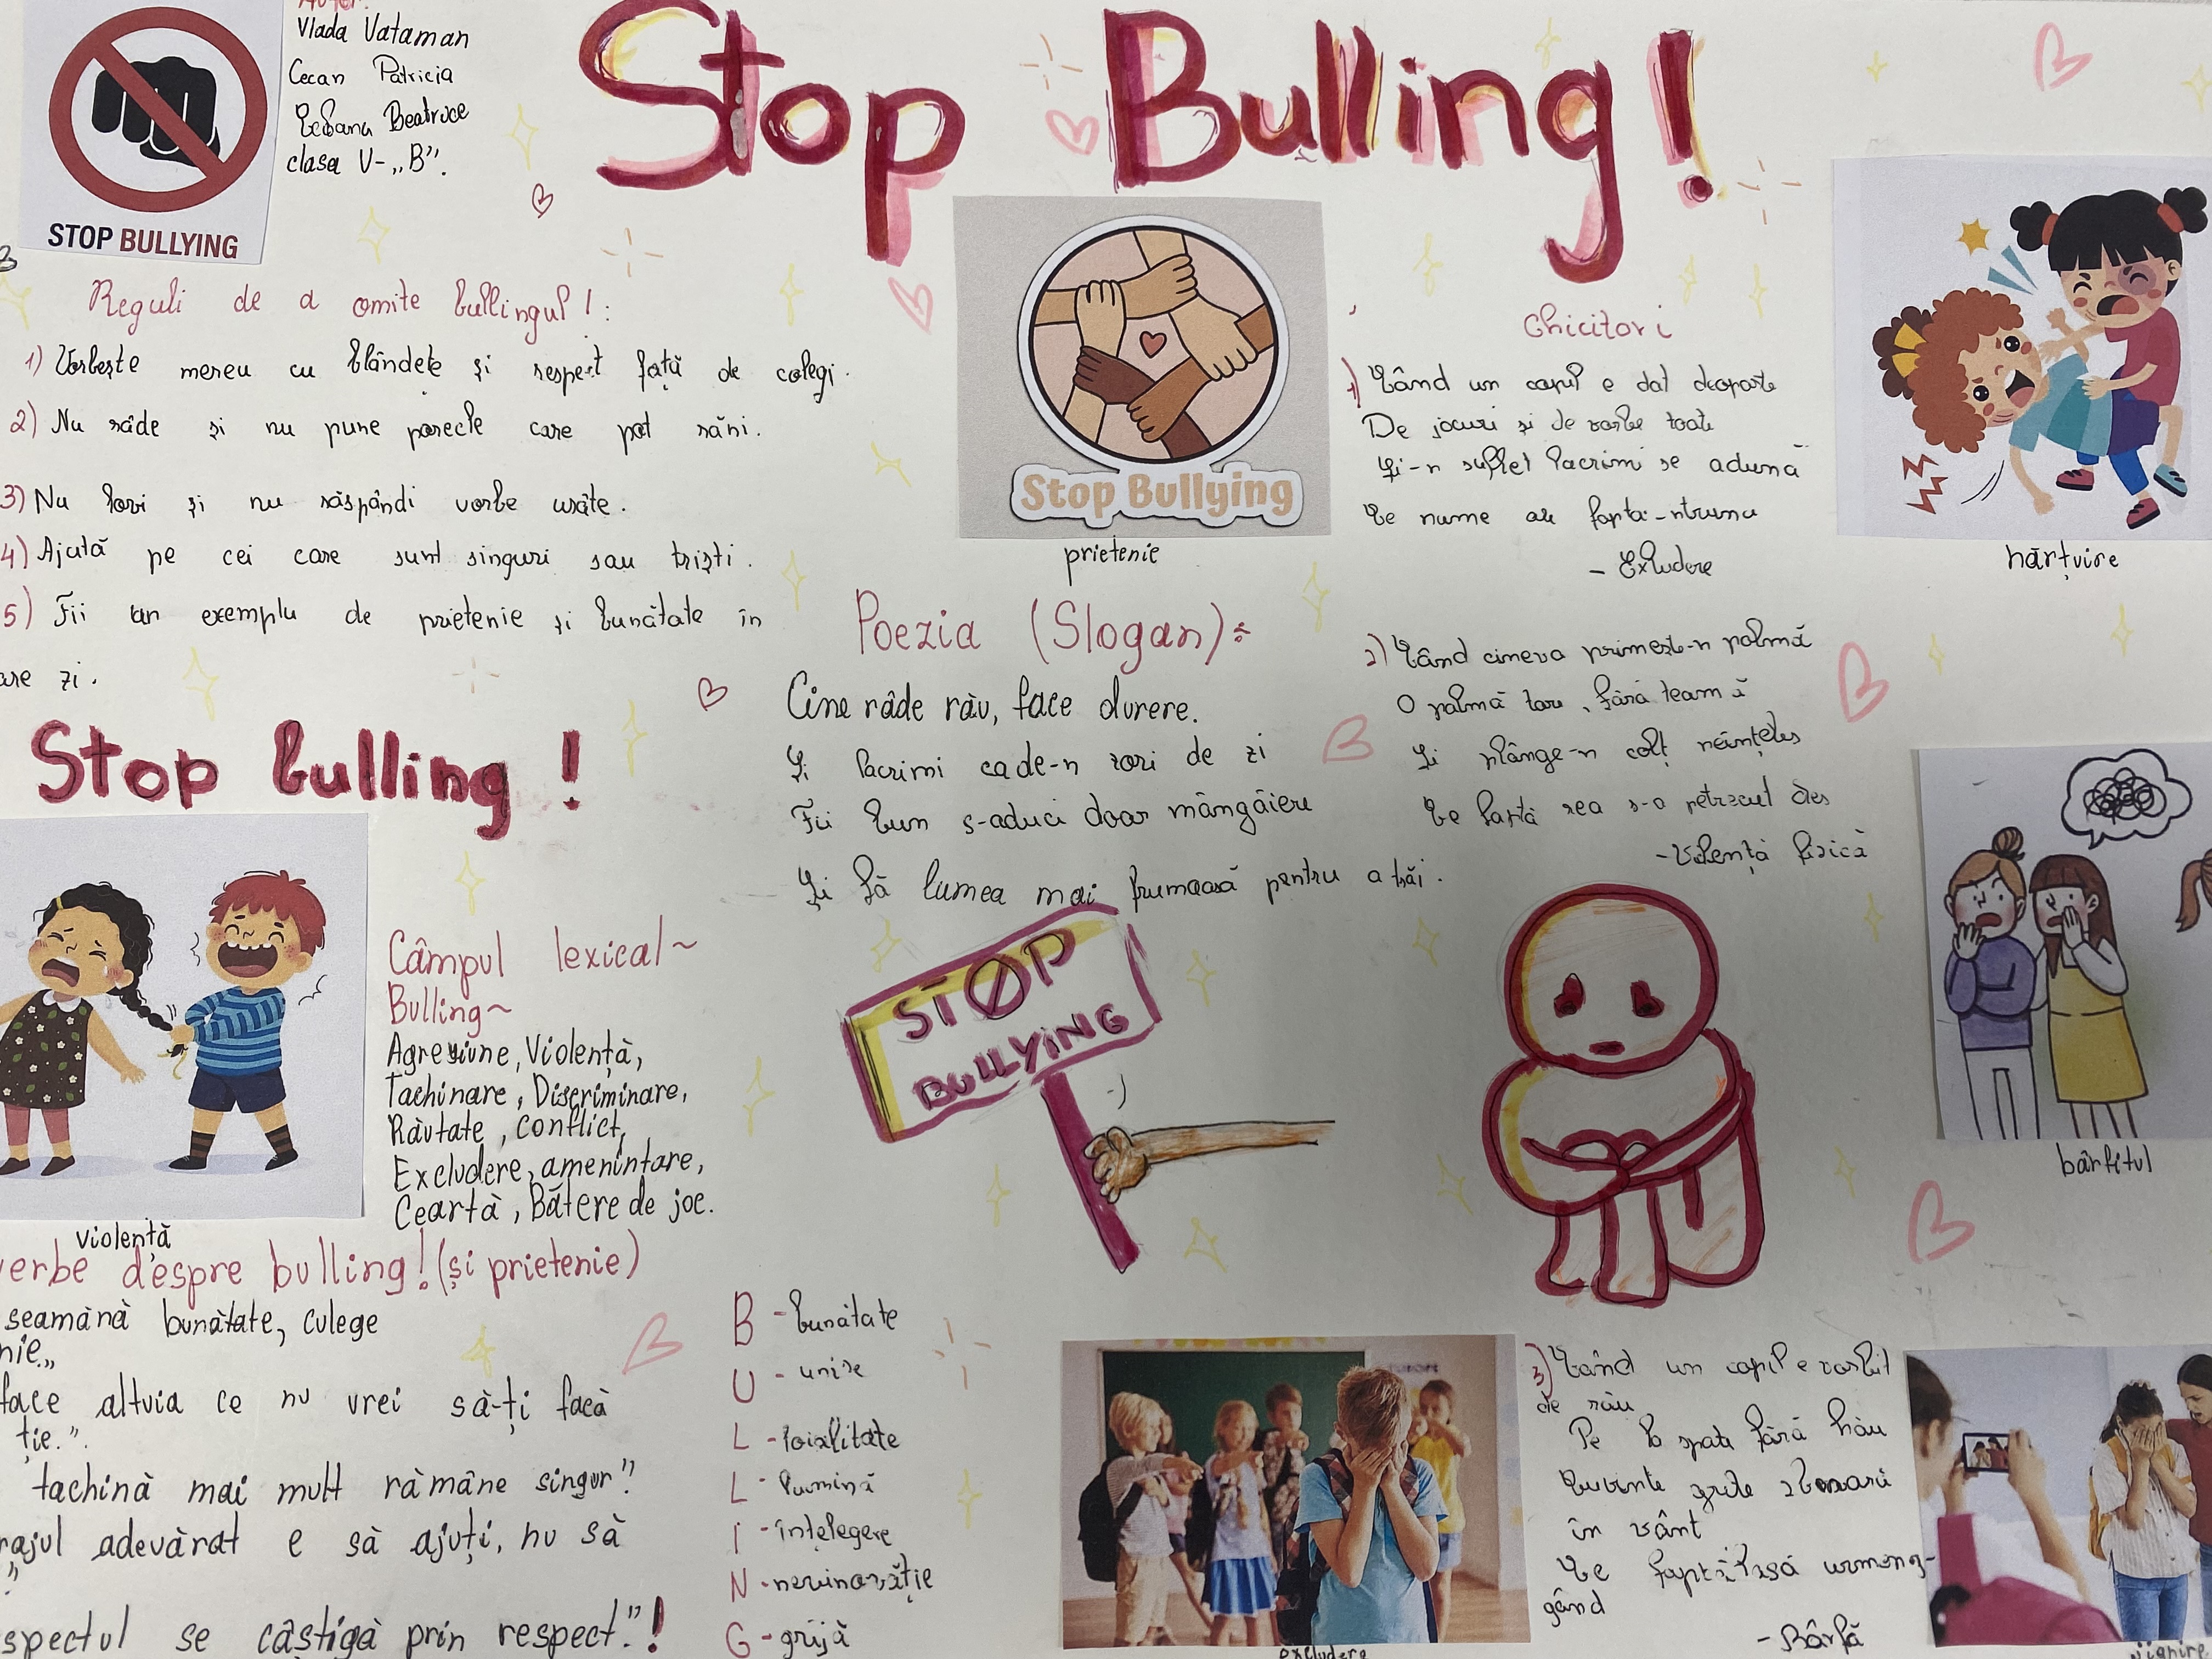 Autor:
Vlada Vataman
Cecan Patricia
Beatrice
clasa V-„B”.
STOP BULLYING
Stop Bulling!
Reguli de a omite bullingul!:
1) Vorbește mereu cu blândețe și respect față de colegi.
2) Nu râde și nu pune porecle care pot răni.
3) Nu lovi și nu răspândi vorbe urâte.
4) Ajută pe cei care sunt singuri sau triști.
5) Fii un exemplu de prietenie și bunătate în
are zi.
Stop Bullying
prietenie
Ghicitori
1) Când un copil e dat deoparte
De jocuri și de vorbe toate
Și-n suflet lacrimi se adună
Ce nume are fapta-ntruna
- Excludere
hărțuire
Poezia (Slogan):
Cine râde rău, face durere.
Și lacrimi cade-n zori de zi
Fii bun s-aduci doar mângâiere
Și fă lumea mai frumoasă pentru a trăi.
2) Când cineva primește-n palmă
O palmă tare, fără teamă
Și plânge-n colț neînțeles
Ce faptă rea s-a petrecut des
-Violență fizică
Stop bulling!
violență
Câmpul lexical~
Bulling~
Agresiune, Violență,
Tachinare, Discriminare,
Răutate, conflict,
Excludere, amenintare,
Ceartă, Bătere de joc.
STOP
BULLYING
bârfitul
verbe despre bulling! (și prietenie)
seamănă bunătate, culege
nie.„
face altuia ce nu vrei să-ți facă
ție.”.
tachină mai mult rămâne singur”
rajul adevărat e să ajuți, nu să
”
spectul se câștigă prin respect.”!
B - bunătate
U - unire
L - loialitate
L - lumină
I - înțelegere
N - nevinovăție
G - grijă
excludere
3) Când un copil e vorbit
de rău
Pe la spate fără hău
Cuvinte grele zboară
în vânt
Ce faptă lasă urmeng-
gând
- Bârfă